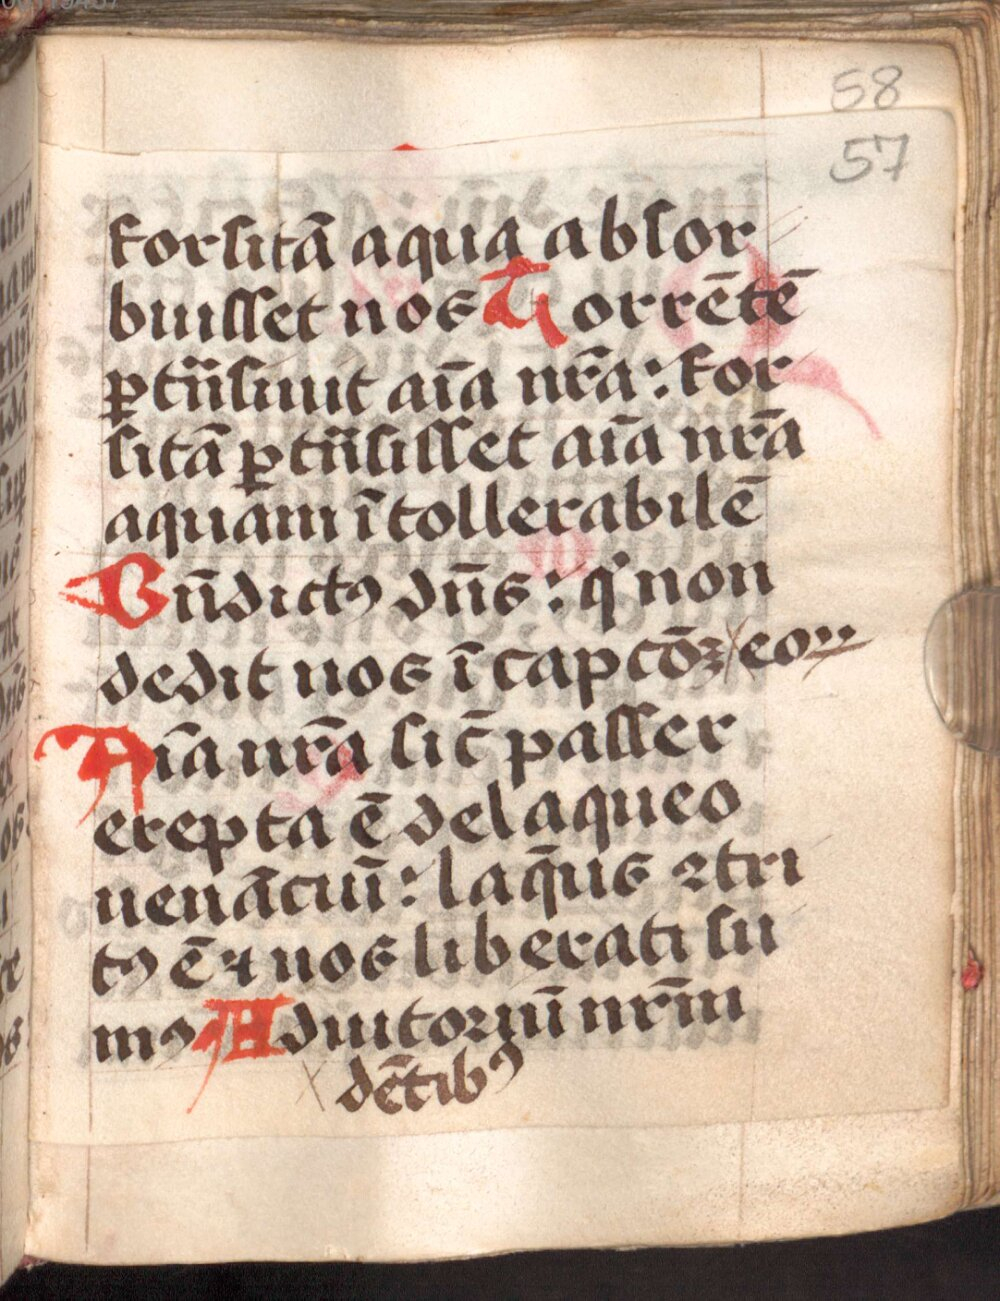 58
57
forsitā aqua absor
buisset nos Torrētē
ꝑtn̄siuit aīa nr̄a: for
sitā ꝑtn̄sisset aīa nr̄a
aquam ītollerabilē
Bn̄dictꝰ dn̄s: qͥ non
dedit nos ī capcōꝫ eoꝝ
Aīa nr̄a sic̄ passer
erepta ē de laqueo
uenāciū: laq̄us ꝯtri
tꝰ ē ⁊ nos liberati su
mꝰ Adiutoriū nr̄m
dētibꝰ